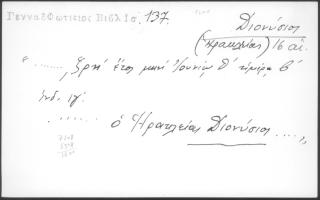 Γενναδ Φωτιειος Βιβλιο. 137
Διονύσιος
(Ηρακλείας) 16 αἰ.
"......., ζρκʹ ἔτος μηνὶ Ἰουνίῳ θʹ ἡμέρᾳ βʹ
ἰνδ. ιγʹ.
....... ὁ Ἡρακλείας Διονύσιος ....,,